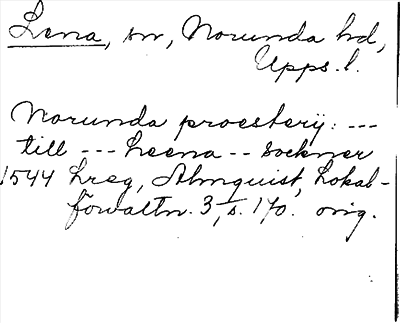 Lena, sn, Norunda hd,
Upps. l.
Norunda proesterij: ---
till --- Leena -- sockner
1544 Lreg, Almquist, Lokal-
förvaltn. 3, s. 170. orig.